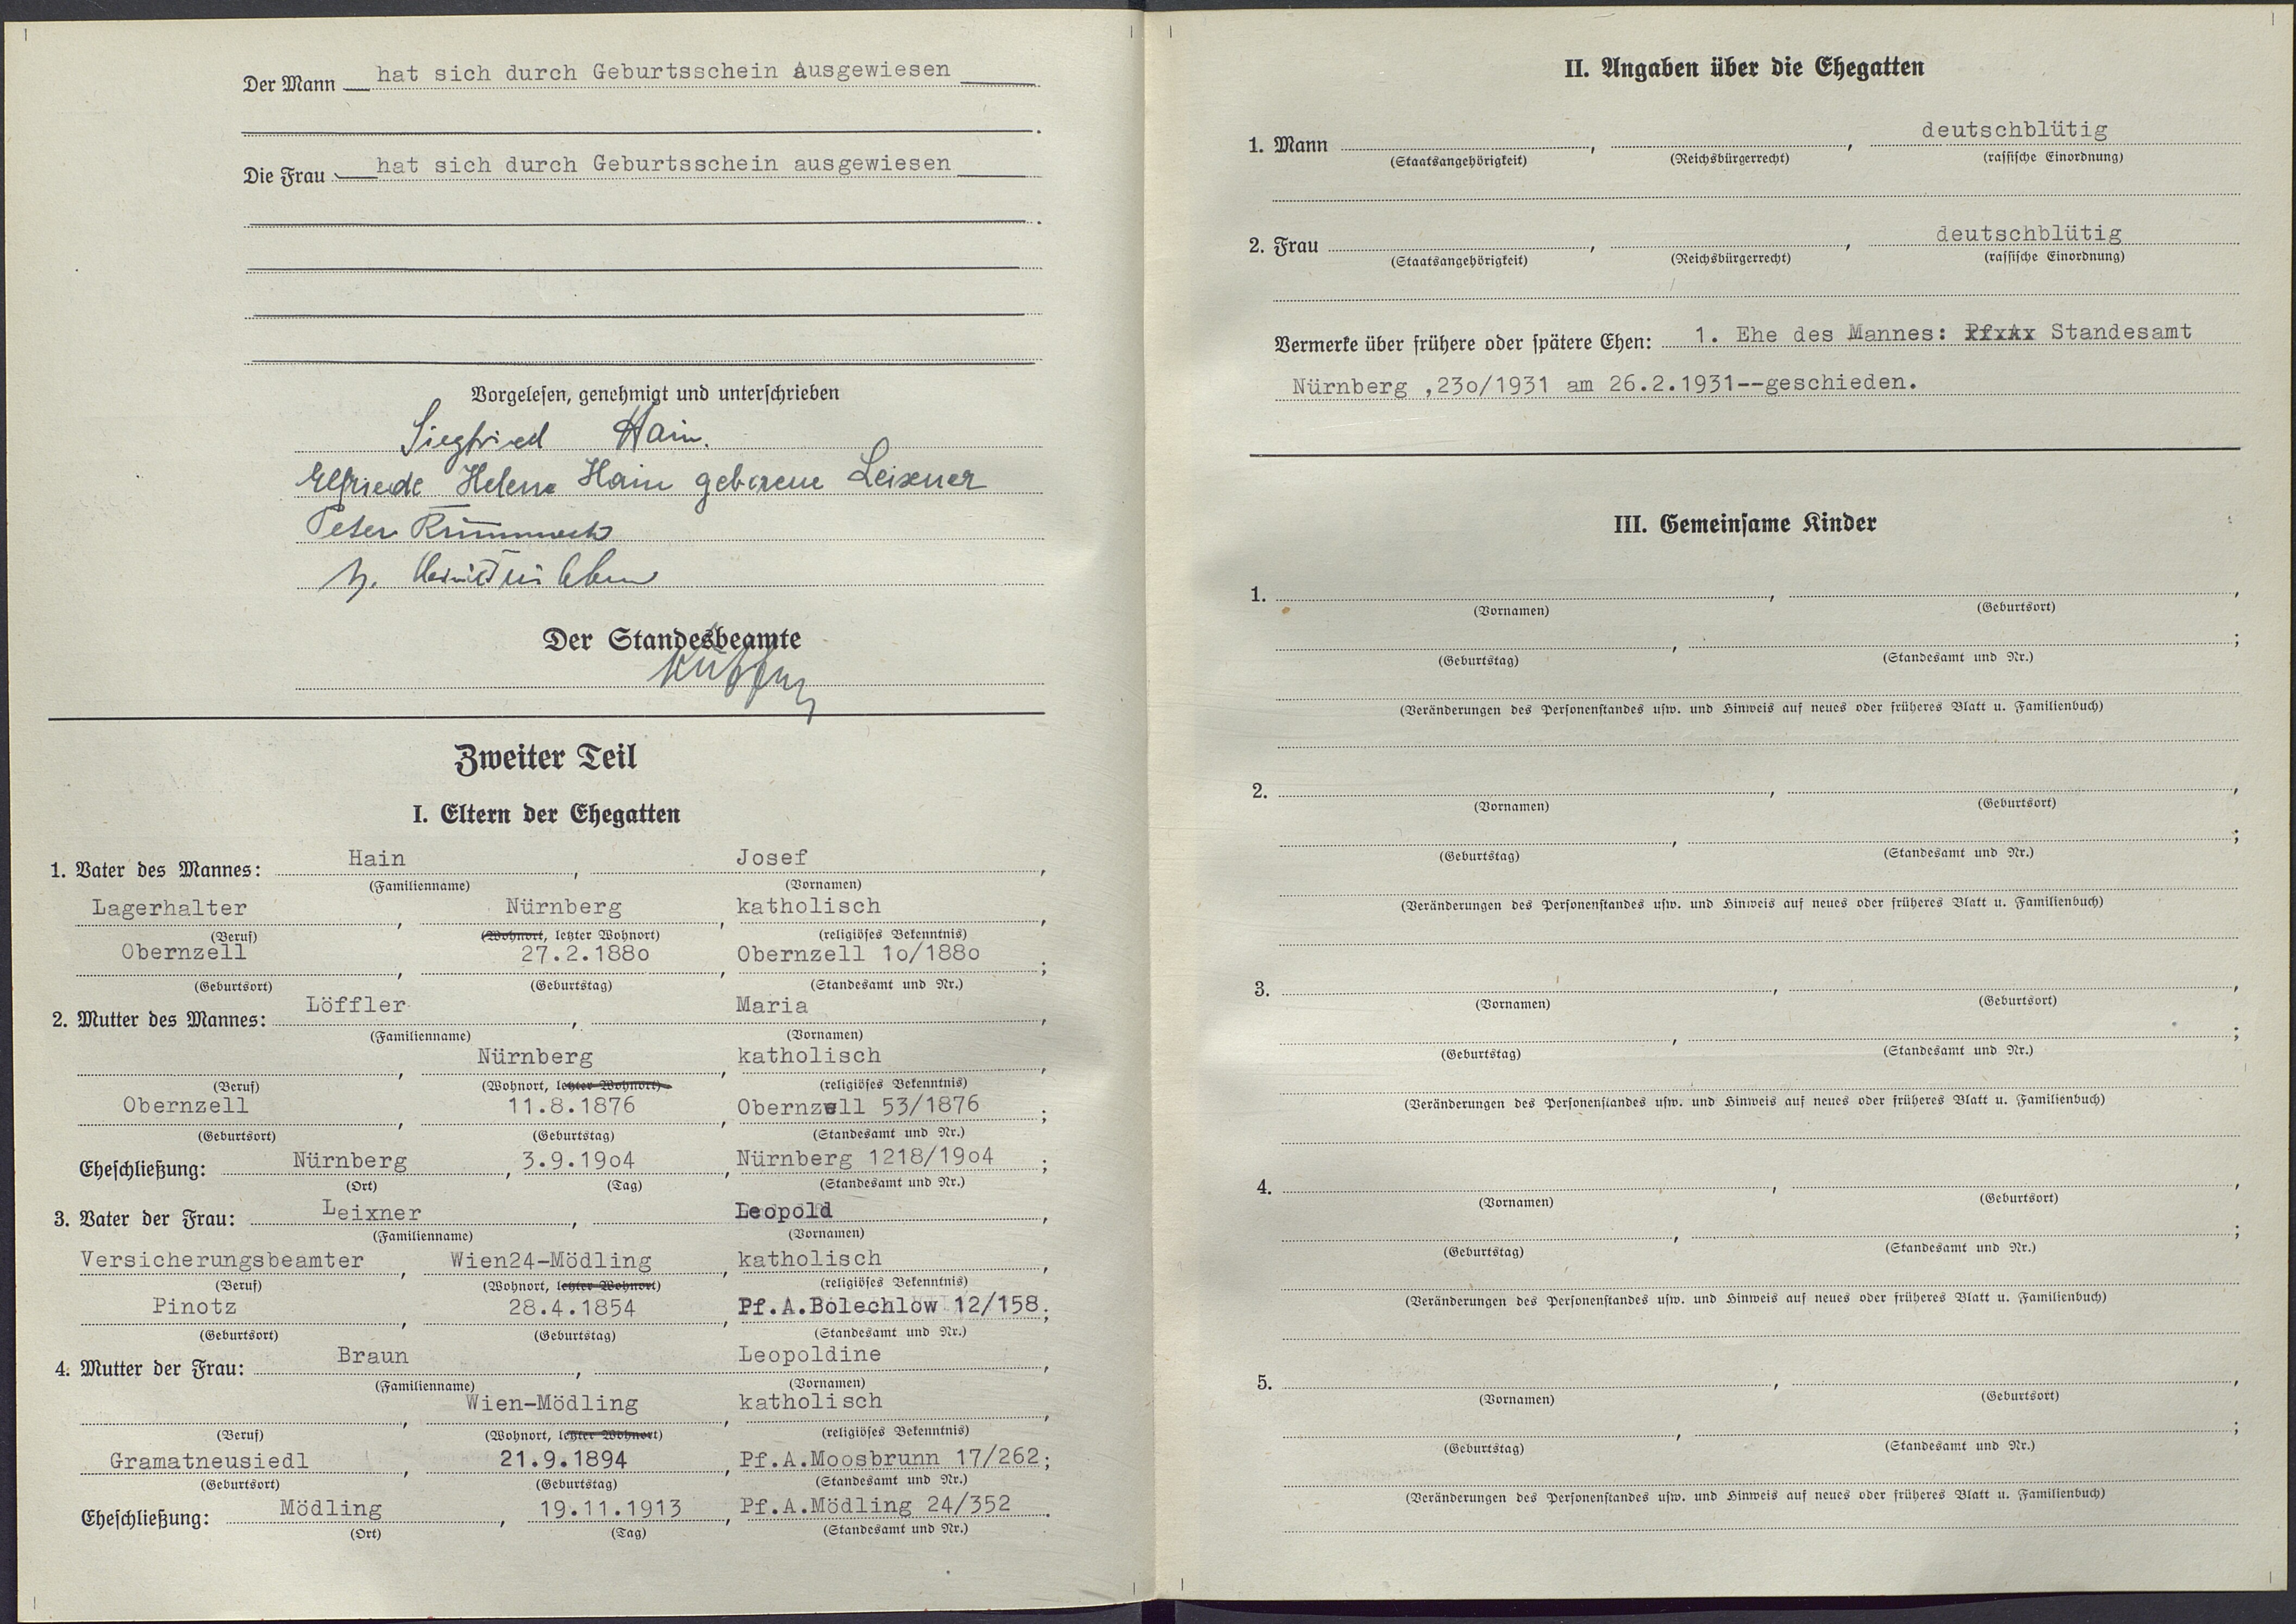 Der Mann hat sich durch Geburtsschein Ausgewiesen
.
Die Frau hat sich durch Geburtsschein ausgewiesen
.
Vorgelesen, genehmigt und unterschrieben
Siegfried Hain.
Elfriede Helene Hain geborene Leixner
Peter
Der Standesbeamte
Zweiter Teil
I. Eltern der Ehegatten
1. Vater des Mannes: Hain, Josef,
(Familienname) (Vornamen)
Lagerhalter, Nürnberg, katholisch,
(Beruf) (Wohnort, letzter Wohnort) (religiöses Bekenntnis)
Obernzell, 27.2.188o, Obernzell 1o/188o;
(Geburtsort) (Geburtstag) (Standesamt und Nr.)
2. Mutter des Mannes: Löffler, Maria,
(Familienname) (Vornamen)
, Nürnberg, katholisch,
(Beruf) (Wohnort, letzter Wohnort) (religiöses Bekenntnis)
Obernzell, 11.8.1876, Obernzell 53/1876;
(Geburtsort) (Geburtstag) (Standesamt und Nr.)
Eheschließung: Nürnberg, 3.9.19o4, Nürnberg 1218/19o4;
(Ort) (Tag) (Standesamt und Nr.)
3. Vater der Frau: Leixner, Leopold,
(Familienname) (Vornamen)
Versicherungsbeamter, Wien24-Mödling, katholisch,
(Beruf) (Wohnort, letzter Wohnort) (religiöses Bekenntnis)
Pinotz, 28.4.1854, Pf.A.Bolechlow 12/158;
(Geburtsort) (Geburtstag) (Standesamt und Nr.)
4. Mutter der Frau: Braun, Leopoldine,
(Familienname) (Vornamen)
, Wien-Mödling, katholisch,
(Beruf) (Wohnort, letzter Wohnort) (religiöses Bekenntnis)
Gramatneusiedl, 21.9.1894, Pf.A.Moosbrunn 17/262;
(Geburtsort) (Geburtstag) (Standesamt und Nr.)
Eheschließung: Mödling, 19.11.1913, Pf.A.Mödling 24/352.
(Ort) (Tag) (Standesamt und Nr.)
II. Angaben über die Ehegatten
1. Mann , , deutschblütig
(Staatsangehörigkeit) (Reichsbürgerrecht) (rassische Einordnung)
2. Frau , , deutschblütig
(Staatsangehörigkeit) (Reichsbürgerrecht) (rassische Einordnung)
Vermerke über frühere oder spätere Ehen: 1. Ehe des Mannes: PfxAx Standesamt
Nürnberg ,23o/1931 am 26.2.1931--geschieden.
III. Gemeinsame Kinder
1. , ,
(Vornamen) (Geburtsort)
, ;
(Geburtstag) (Standesamt und Nr.)
(Veränderungen des Personenstandes usw. und Hinweis auf neues oder früheres Blatt u. Familienbuch)
2. , ,
(Vornamen) (Geburtsort)
, ;
(Geburtstag) (Standesamt und Nr.)
(Veränderungen des Personenstandes usw. und Hinweis auf neues oder früheres Blatt u. Familienbuch)
3. , ,
(Vornamen) (Geburtsort)
, ;
(Geburtstag) (Standesamt und Nr.)
(Veränderungen des Personenstandes usw. und Hinweis auf neues oder früheres Blatt u. Familienbuch)
4. , ,
(Vornamen) (Geburtsort)
, ;
(Geburtstag) (Standesamt und Nr.)
(Veränderungen des Personenstandes usw. und Hinweis auf neues oder früheres Blatt u. Familienbuch)
5. , ,
(Vornamen) (Geburtsort)
, ;
(Geburtstag) (Standesamt und Nr.)
(Veränderungen des Personenstandes usw. und Hinweis auf neues oder früheres Blatt u. Familienbuch)